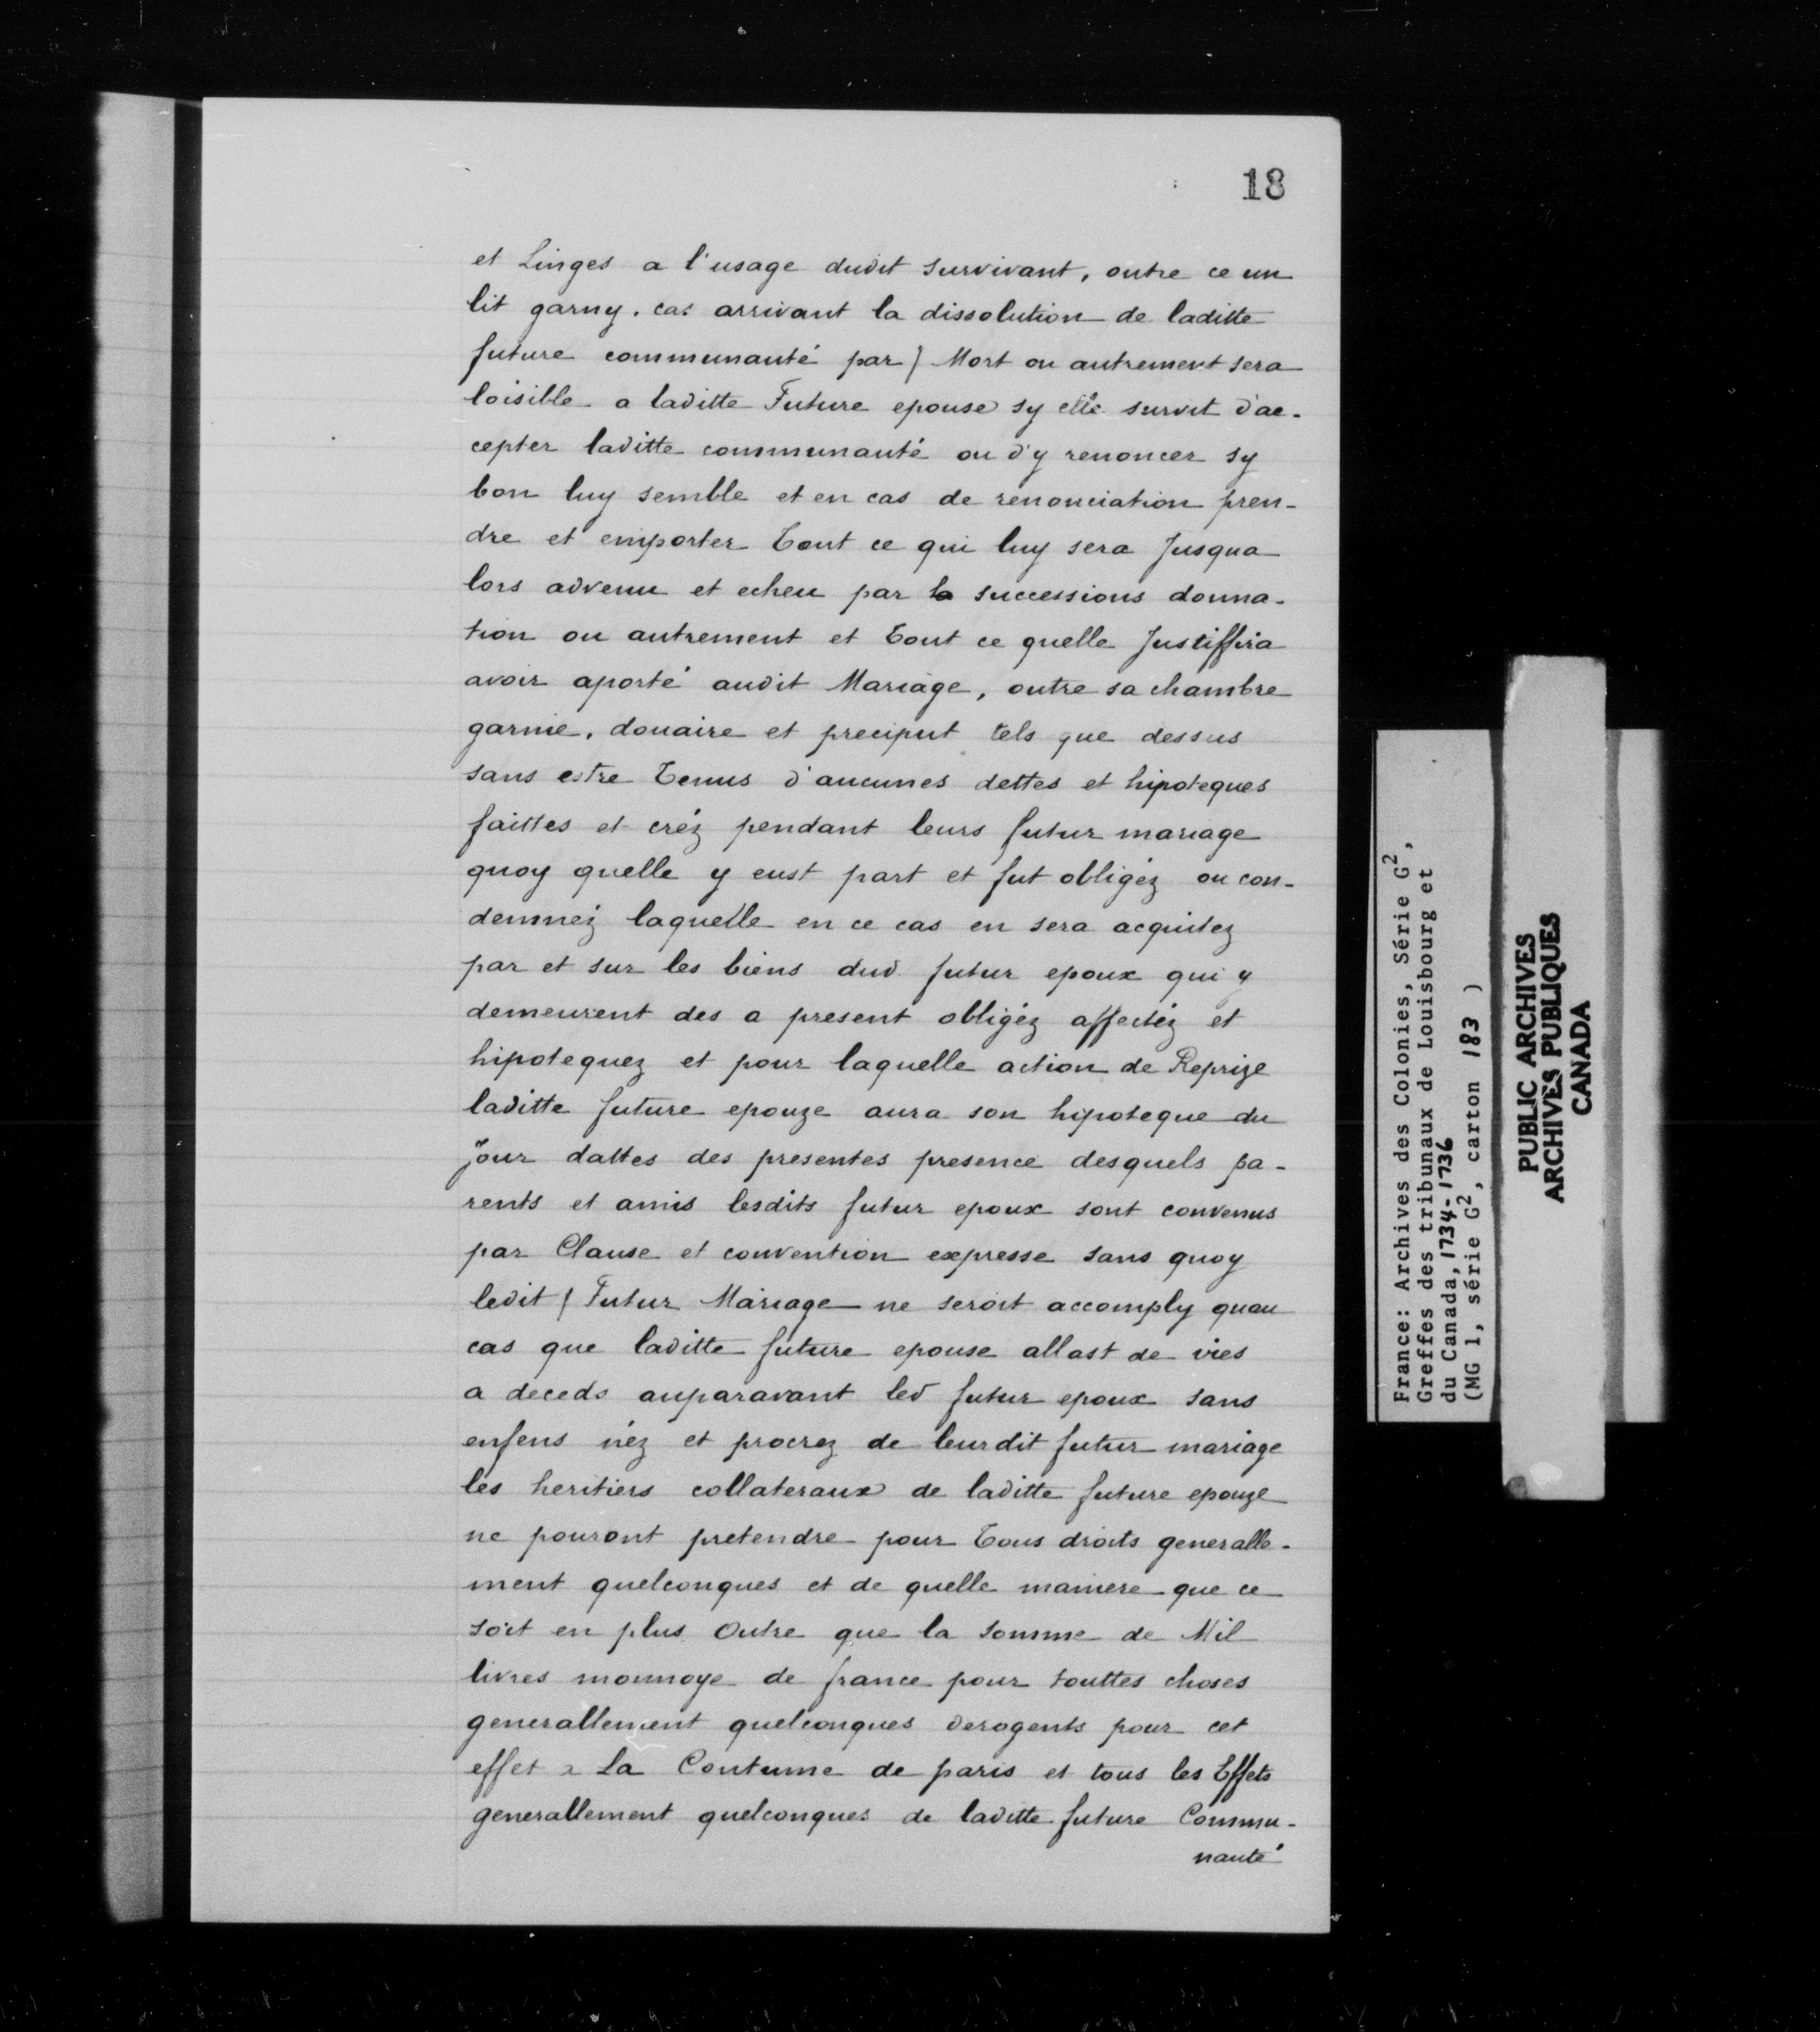 18
et Linges a l'usage dudit survivant, outre ce un
lit garny. cas arrivant la dissolution de laditte
future communauté par } Mort ou autrement sera
loisible a laditte Future epouse sy elle survit d'ac-
cepter laditte communauté ou d'y renoncer sy
bon luy semble et en cas de renonciation pren-
dre et emporter Tout ce qui luy sera Jusqua
lors advenu et echeu par la successions donna-
tion ou autrement et Tout ce quelle Justiffira
avoir aporté audit Mariage, outre sa chambre
garnie, douaire et preciput tels que dessus
sans estre Tenus d'aucunes dettes et hipoteques
faittes et créz pendant leurs futur mariage
quoy quelle y eust part et fut obligéz ou con-
demnéz laquelle en ce cas en sera acquitez
par et sur les biens dud futur epoux qui y
demeurent des a present obligéz affectéz et
hipotequez et pour laquelle action de Reprize
laditte future epouze aura son hipoteque du
jour dattes des presentes presence desquels pa-
rents et amis lesdits futur epoux sont convenus
par Clause et convention expresse sans quoy
ledit { Futur Mariage ne seroit accomply quau
cas que laditte future epouse allast de vies
a deceds auparavant led futur epoux sans
enfens néz et procrez de leurdit futur mariage
les heritiers collateraux de laditte future epouze
ne pouront pretendre pour Tous droits generalle-
ment quelconques et de quelle maniere que ce
soit en plus Outre que la somme de Mil
livres monnoye de france pour touttes choses
generallement quelconques derogents pour cet
effet a La Coutume de paris et tous les Effets
generallement quelconques de laditte future Commu-
nauté
France: Archives des Colonies, Série G²,
Greffes des tribunaux de Louisbourg et
du Canada, 1734-1736
(MG 1, série G², carton 183 )
PUBLIC ARCHIVES
ARCHIVES PUBLIQUES
CANADA